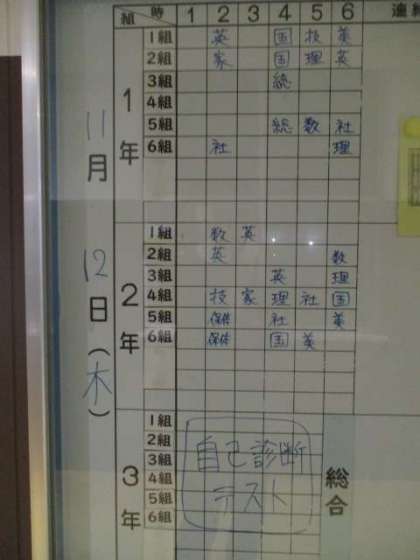 組 時 1 2 3 4 5 6
11月12日(木)
1年
1組 英 国 技 英
2組 家 国 理 英
3組 総
4組
5組 総 数 社
6組 社 理
2年
1組 数 英
2組 英 数
3組 英 理
4組 技 家 理 社 国
5組 保体 社 英
6組 保体 国 英
3年
1組
2組
3組
4組
5組
6組
自己診断
テスト
総合